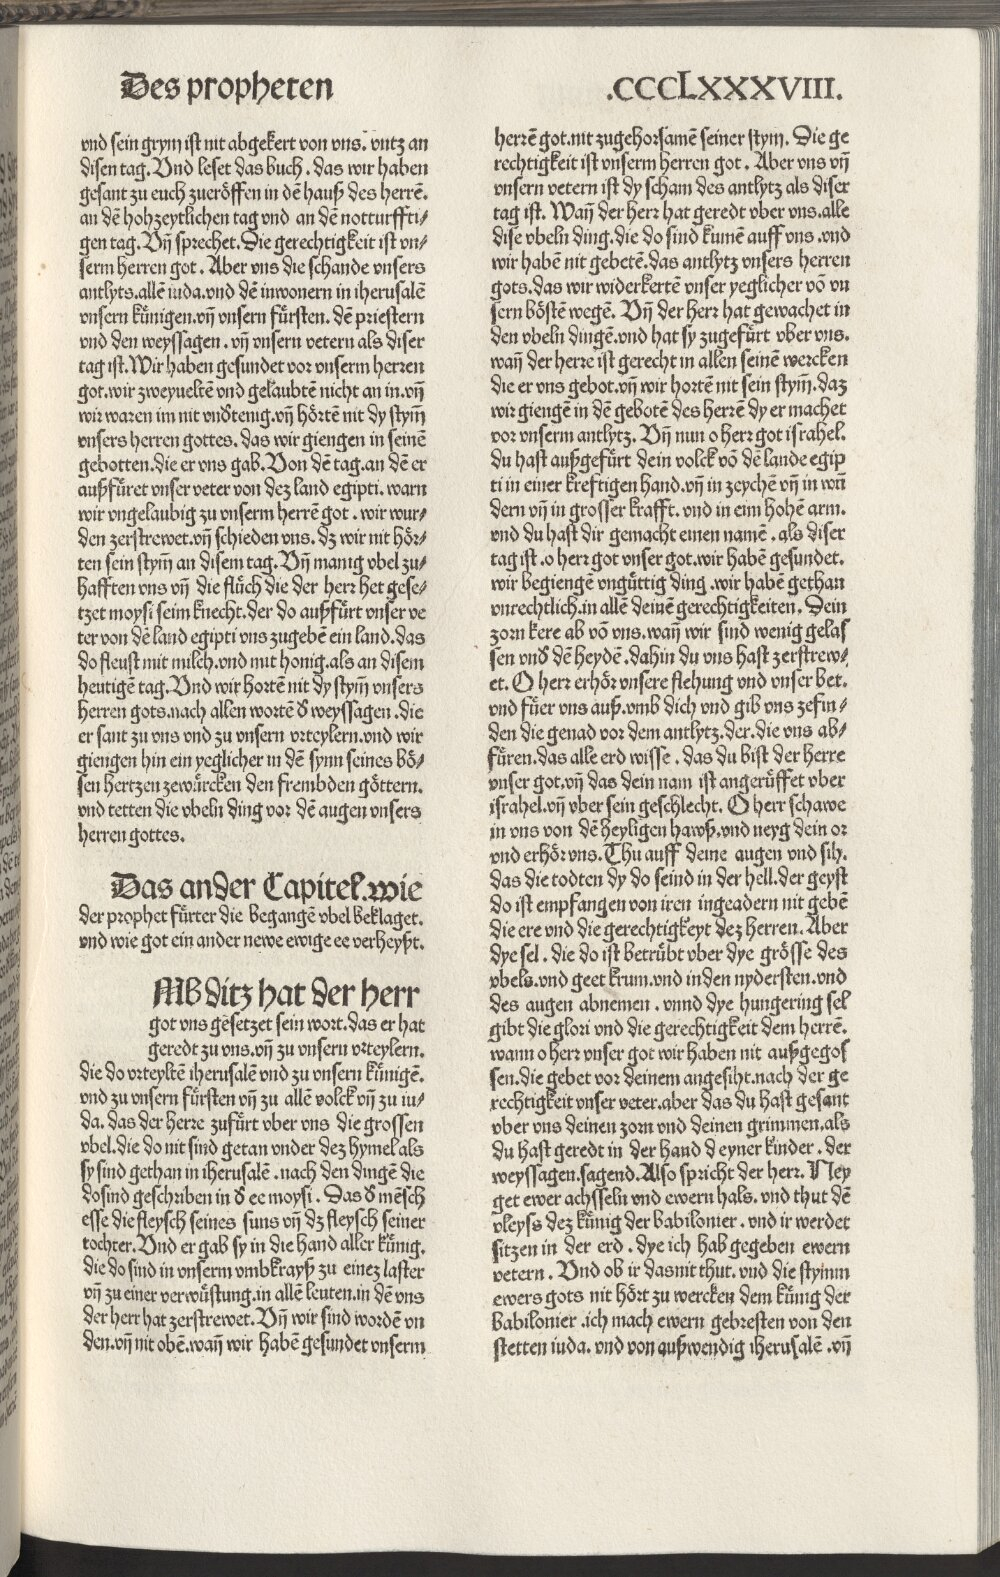 Des propheten
.CCCLXXXVIII.
vnd sein grym ist nit abgekert von vns. vntz an
disen tag. Vnd leset das buch. das wir haben
gesant zu euch zueröffen in dē hauß des herrē.
an dē hohzeytlichen tag vnd an dē notturffti⸗
gen tag. Vn̄ sprechet. Die gerechtigkeit ist vn⸗
serm herren got. Aber vns die schande vnsers
antlyts. allē iuda. vnd dē inwonern in iherusalē
vnsern künigen. vn̄ vnsern fürsten. dē priestern
vnd den weyssagen. vn̄ vnsern vetern als diser
tag ist. Wir haben gesundet vor vnserm herren
got. wir zweyueltē vnd gelaubtē nicht an in. vn̄
wir waren im nit vnđtenig. vn̄ hörtē nit dy stym̄
vnsers herren gottes. das wir giengen in seinē
gebotten. die er vns gab. Von dē tag. an dē er
außfüret vnser veter von dez land egipti. warn
wir vngelaubig zu vnserm herrē got. wir wur⸗
den zerstrewet. vn̄ schieden vns. dz wir nit hör⸗
ten sein stym̄ an disem tag. Vn̄ manig vbel zu⸗
hafften vns vn̄ die flüch die der herr het gese⸗
tzet moysi seim knecht. der do außfürt vnser ve
ter von dē land egipti vns zugebē ein land. das
do fleust mit milch. vnd mit honig. als an disem
heutigē tag. Vnd wir hortē nit dy stym̄ vnsers
herren gots. nach allen wortē đ weyssagen. die
er sant zu vns vnd zu vnsern vrteylern. vnd wir
giengen hin ein yeglicher in dē synn seines bö⸗
sen hertzen zewürcken den frembden göttern.
vnd tetten die vbeln ding vor dē augen vnsers
herren gottes.
Das ander Capitel. wie
der prophet fürter die begangē vbel beklaget.
vnd wie got ein ander newe ewige ee verheyßt.
MB ditz hat der herr
got vns gesetzet sein wort. das er hat
geredt zu vns. vn̄ zu vnsern vrteylern.
die do vrteyltē iherusalē vnd zu vnsern künigē.
vnd zu vnsern fürsten vn̄ zu allē volck vn̄ zu iu⸗
da. das der herre zufürt vber vns die grossen
vbel. die do nit sind getan vnder dez hymel als
sy sind gethan in iherusalē. nach den dingē die
do sind geschriben in đ ee moysi. Das đ mēsch
esse die fleysch seines suns vn̄ dz fleysch seiner
tochter. Vnd er gab sy in die hand aller künig.
die do sind in vnserm vmbkrayß zu einez laster
vn̄ zu einer verwüstung. in allē leuten. in dē vns
der herr hat zerstrewet. Vn̄ wir sind wordē vn
den. vn̄ nit obē. wan̄ wir habē gesundet vnserm
herrē got. nit zugehorsamē seiner stym. Die ge
rechtigkeit ist vnserm herren got. Aber vns vn̄
vnsern vetern ist dy scham des antlytz als diser
tag ist. Wan̄ der herr hat geredt vber vns. alle
dise vbeln ding. die do sind kumē auff vns. vnd
wir habē nit gebetē. das antlytz vnsers herren
gots. das wir widerkertē vnser yeglicher vō vn
sern böstē wegē. Vn̄ der herr hat gewachet in
den vbeln dingē. vnd hat sy zugefürt vber vns.
wan̄ der herre ist gerecht in allen seinē wercken
die er vns gebot. vn̄ wir hortē nit sein stym̄. daz
wir giengē in dē gebotē des herrē dy er machet
vor vnserm antlytz. Vn̄ nun o herr got israhel.
du hast außgefürt dein volck vō dē lande egip
ti in einer kreftigen hand. vn̄ in zeychē vn̄ in wū
dern vn̄ in grosser krafft. vnd in eim hohē arm.
vnd du hast dir gemacht einen namē. als diser
tag ist. o herr got vnser got. wir habē gesundet.
wir begiengē vngüttig ding. wir habē gethan
vnrechtlich. in allē deinē gerechtigkeiten. Dein
zorn kere ab vō vns. wan̄ wir sind wenig gelas
sen vnđ dē heydē. dahin du vns hast zerstrew⸗
et. O herr erhör vnsere flehung vnd vnser bet.
vnd füer vns auß. vmb dich vnd gib vns zefin⸗
den die genad vor dem antlytz. der. die vns ab⸗
füren. das alle erd wisse. das du bist der herre
vnser got. vn̄ das dein nam ist angerüffet vber
israhel. vn̄ vber sein geschlecht. O herr schawe
in vns von dē heyligen hawß. vnd neyg dein or
vnd erhör vns. Thu auff deine augen vnd sih.
das die todten dy do seind in der hell. der geyst
do ist empfangen von iren ingeadern nit gebē
die ere vnd die gerechtigkeyt dez herren. Aber
dye sel. die do ist betrübt vber dye grösse des
vbels. vnd geet krum. vnd in den nydersten. vnd
des augen abnemen. vnnd dye hungering sel
gibt die glori vnd die gerechtigkeit dem herrē.
wann o herr vnser got wir haben nit außgegos
sen. die gebet vor deinem angesiht. nach der ge
rechtigkeit vnser veter. aber das du hast gesant
vber vns deinen zorn vnd deinen grimmen. als
du hast geredt in der hand deyner kinder. der
weyssagen. sagend. Also spricht der herr. Ney
get ewer achsseln vnd ewern hals. vnd thut dē
vleyss dez künig der babilonier. vnd ir werdet
sitzen in der erd. dye ich hab gegeben ewern
vetern. Vnd ob ir das nit thut. vnd die stymm
ewers gots nit hört zu wercken dem künig der
babilonier. ich mach ewern gebresten von den
stetten iuda. vnd von außwendig iherusalē. vn̄